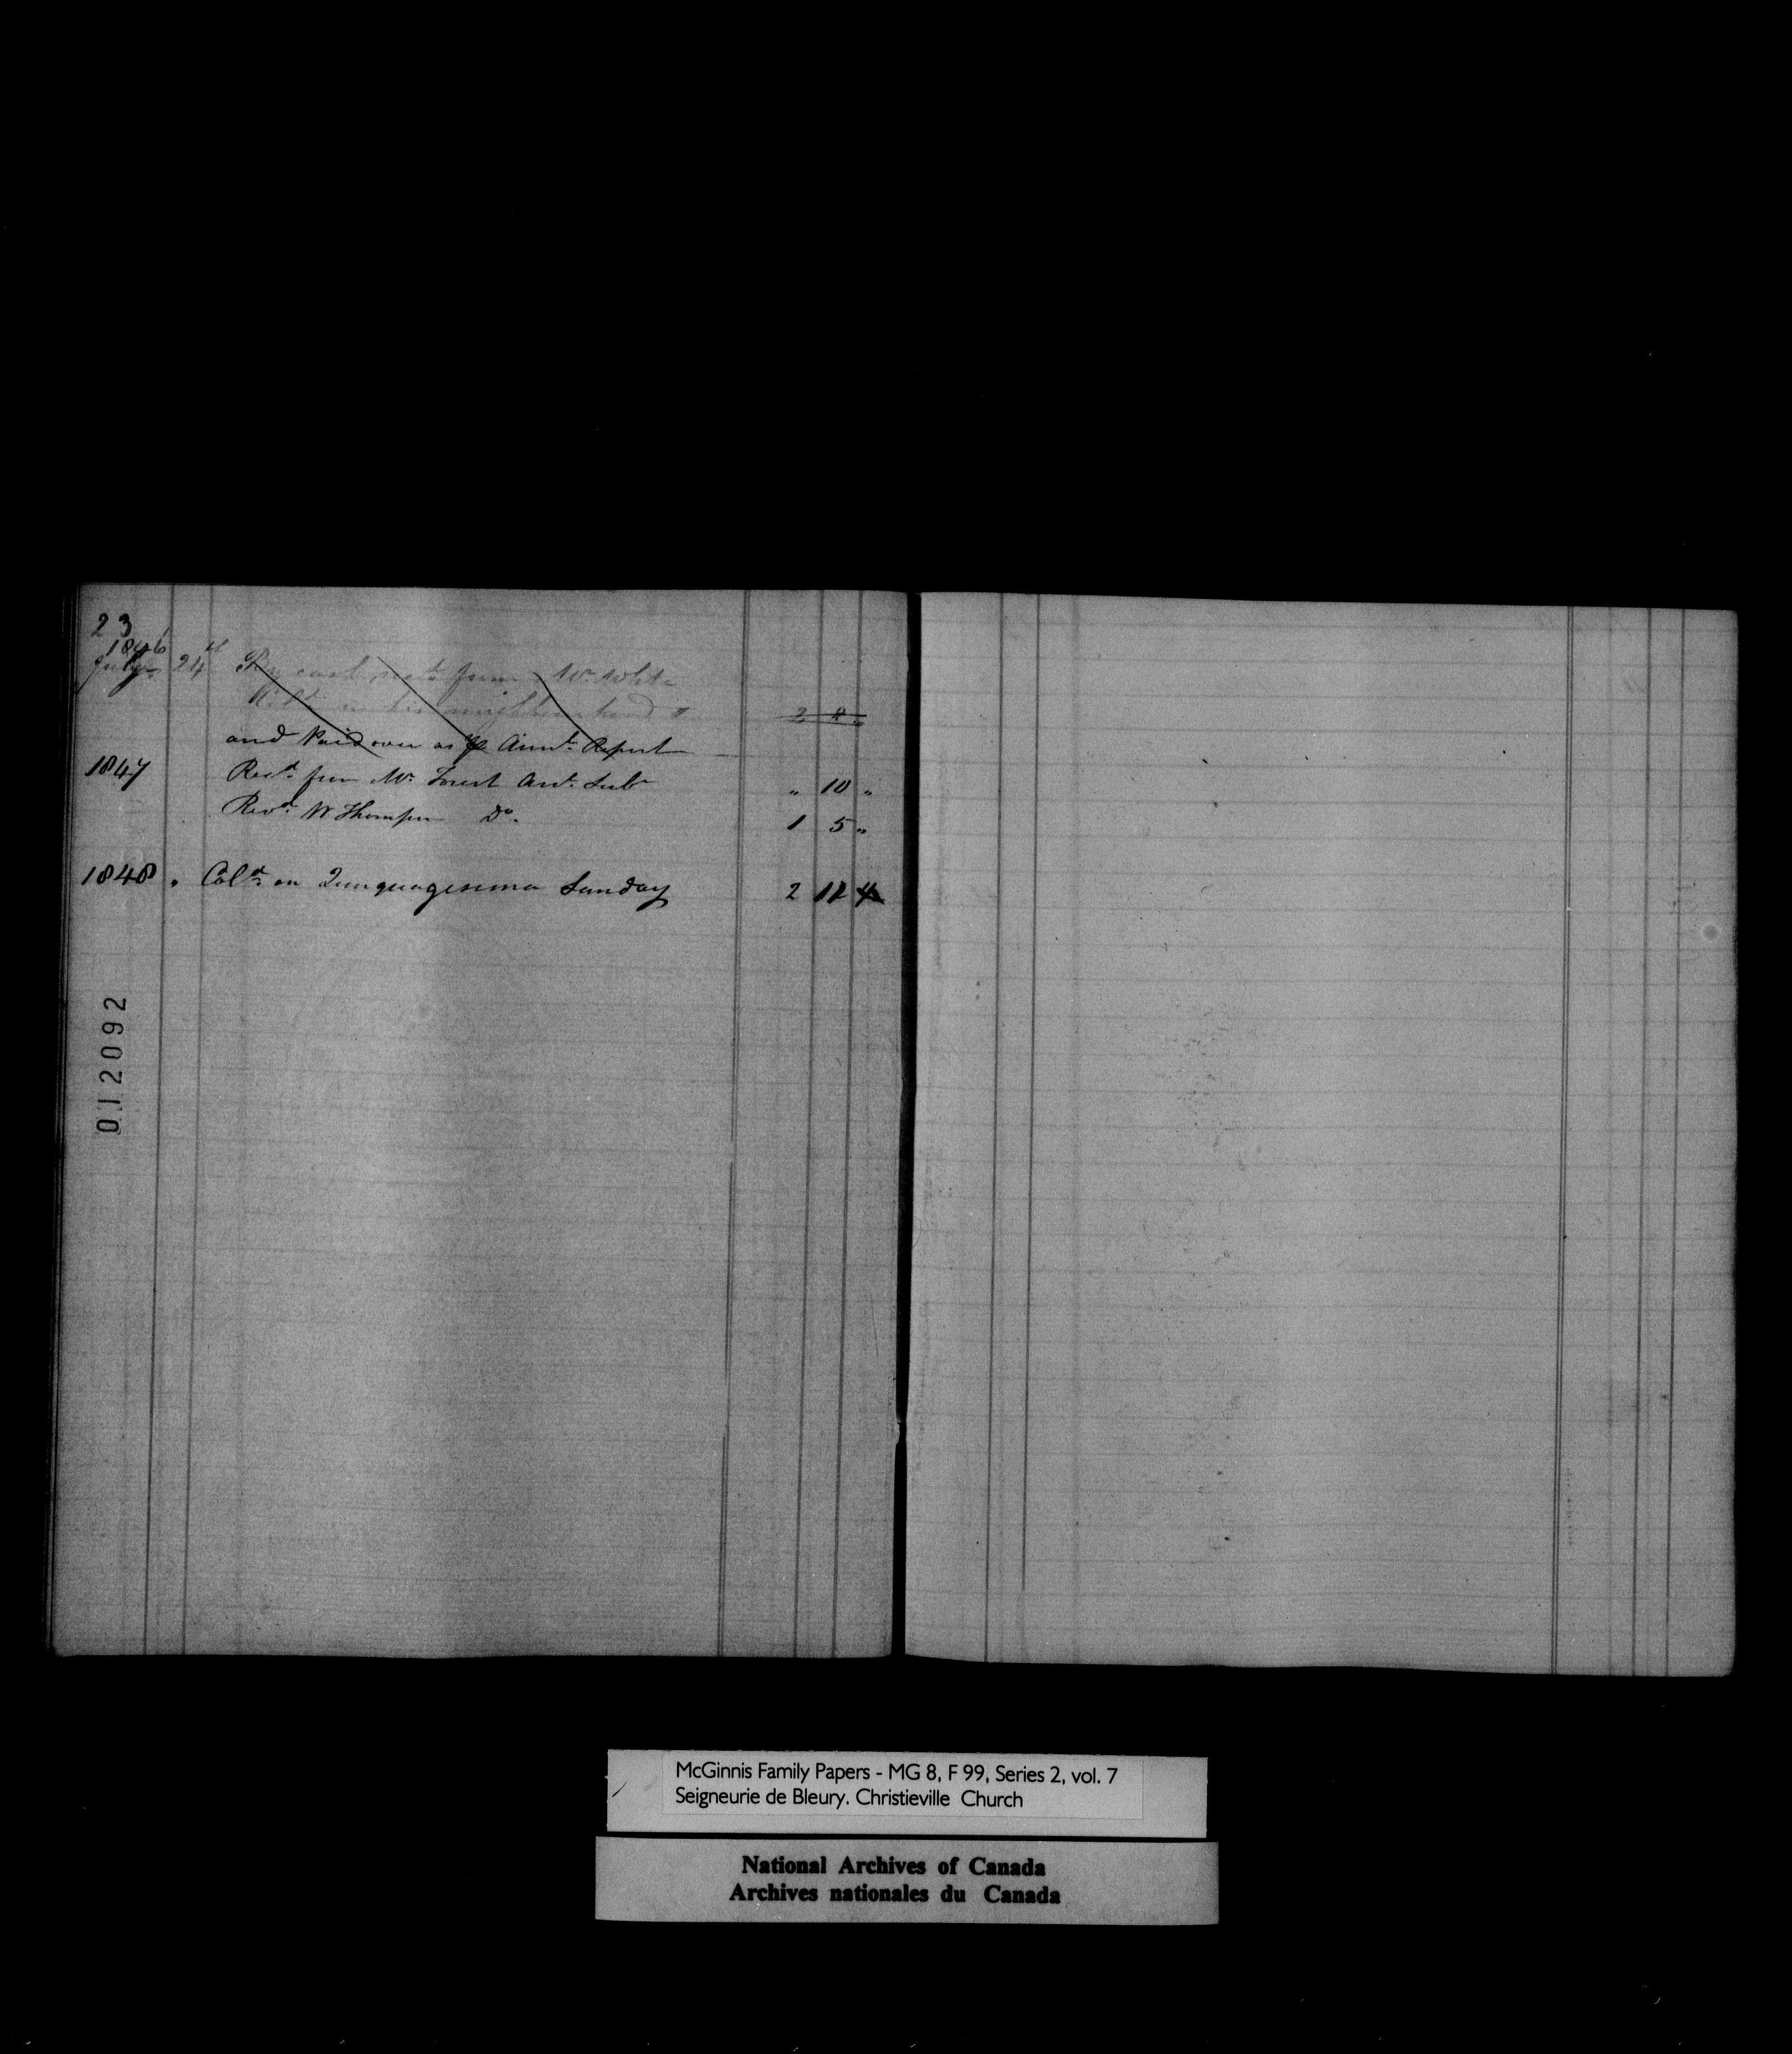 23
1846
July 24th By cash recd from Mr White
in his neighbourhood 2 8 "
and Paid over as p Annl Report
1847 Recd from Mr Forest Anl Sub " 10 "
Revd W Thompson Do 1 5 "
1848 " Cold on Quinquagesima Sunday 2 12 4
012092
McGinnis Family Papers - MG 8, F 99, Series 2, vol. 7
Seigneurie de Bleury. Christieville Church
National Archives of Canada
Archives nationales du Canada